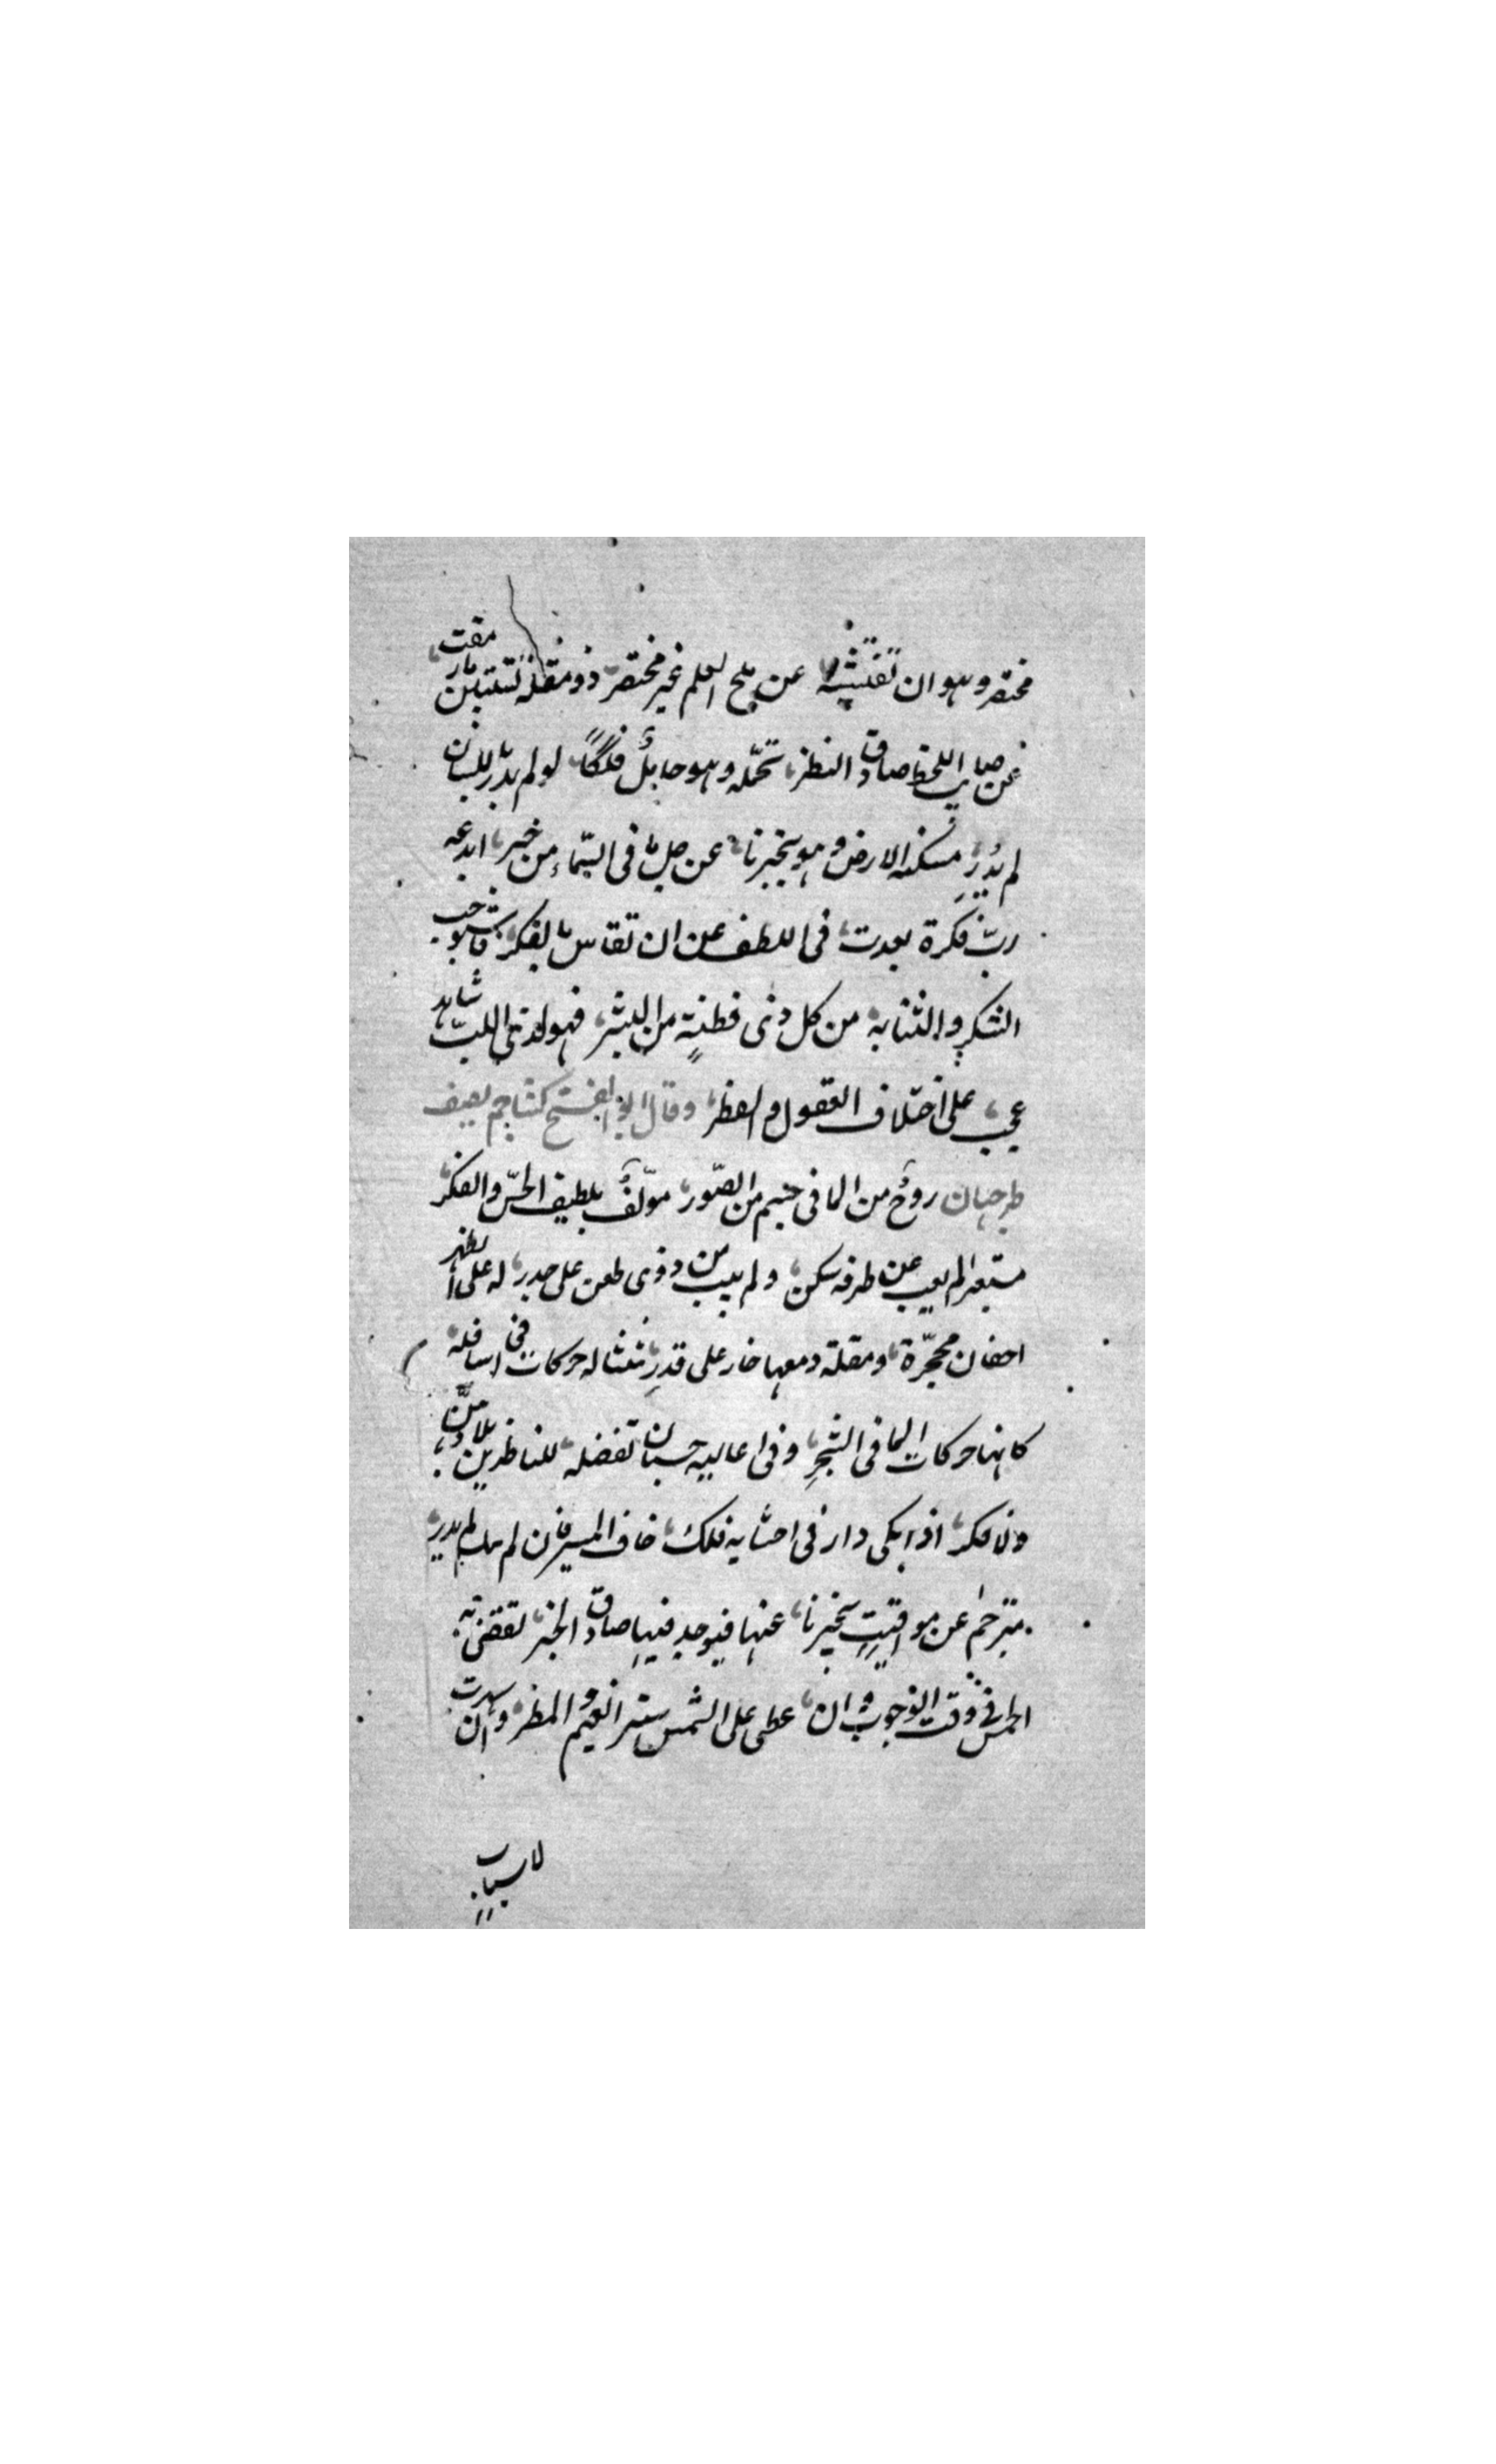 مختصر وهو ان تفتشه عن ملح العلم غير مختصر ذو مقلة تستبين ما رمقت
عن صايب اللحظ صادق النظر تحمله وهو حامل فلكا لو لم يدر للبنان
لم يدر مسكنه الارض وهو يخبرنا عن جل ما فى السماء من خبر ابدعه
رب فكرة بعدت فى اللطف عن ان تقاس بالفكر فاستوجب
الشكر والثنا به من كل ذى فطنة من البشر فهو لذى اللب شاهد
عجب على اختلاف العقول والفطر وقال ابو الفتح كشاجم يصف
طرجهان روح من الما فى جسم من الصور مولف بلطيف الحس والفكر
مستعبر لم يغب عن طرفه سكن ولم يبت من ذوى ظعن على حذر له على الظهر
اجفان محجرة ومقلة دمعها جار على قدر تنشا له حركات فى اسافله
كانها حركات الما فى الشجر وفى اعاليه حسبان تفضله للناظرين بلا ذهن
ولا فكر اذا بكى دار فى احشايه فلك خافى المسير فان لم يبك لم يدر
مترجم عن مواقيت يخبرنا عنها فيوجد فيها صادق الخبر تقضى به
الخمس فى وقت الوجوب وان غطى على الشمس ستر الغيم والمطر وان سهرت
لاسباب